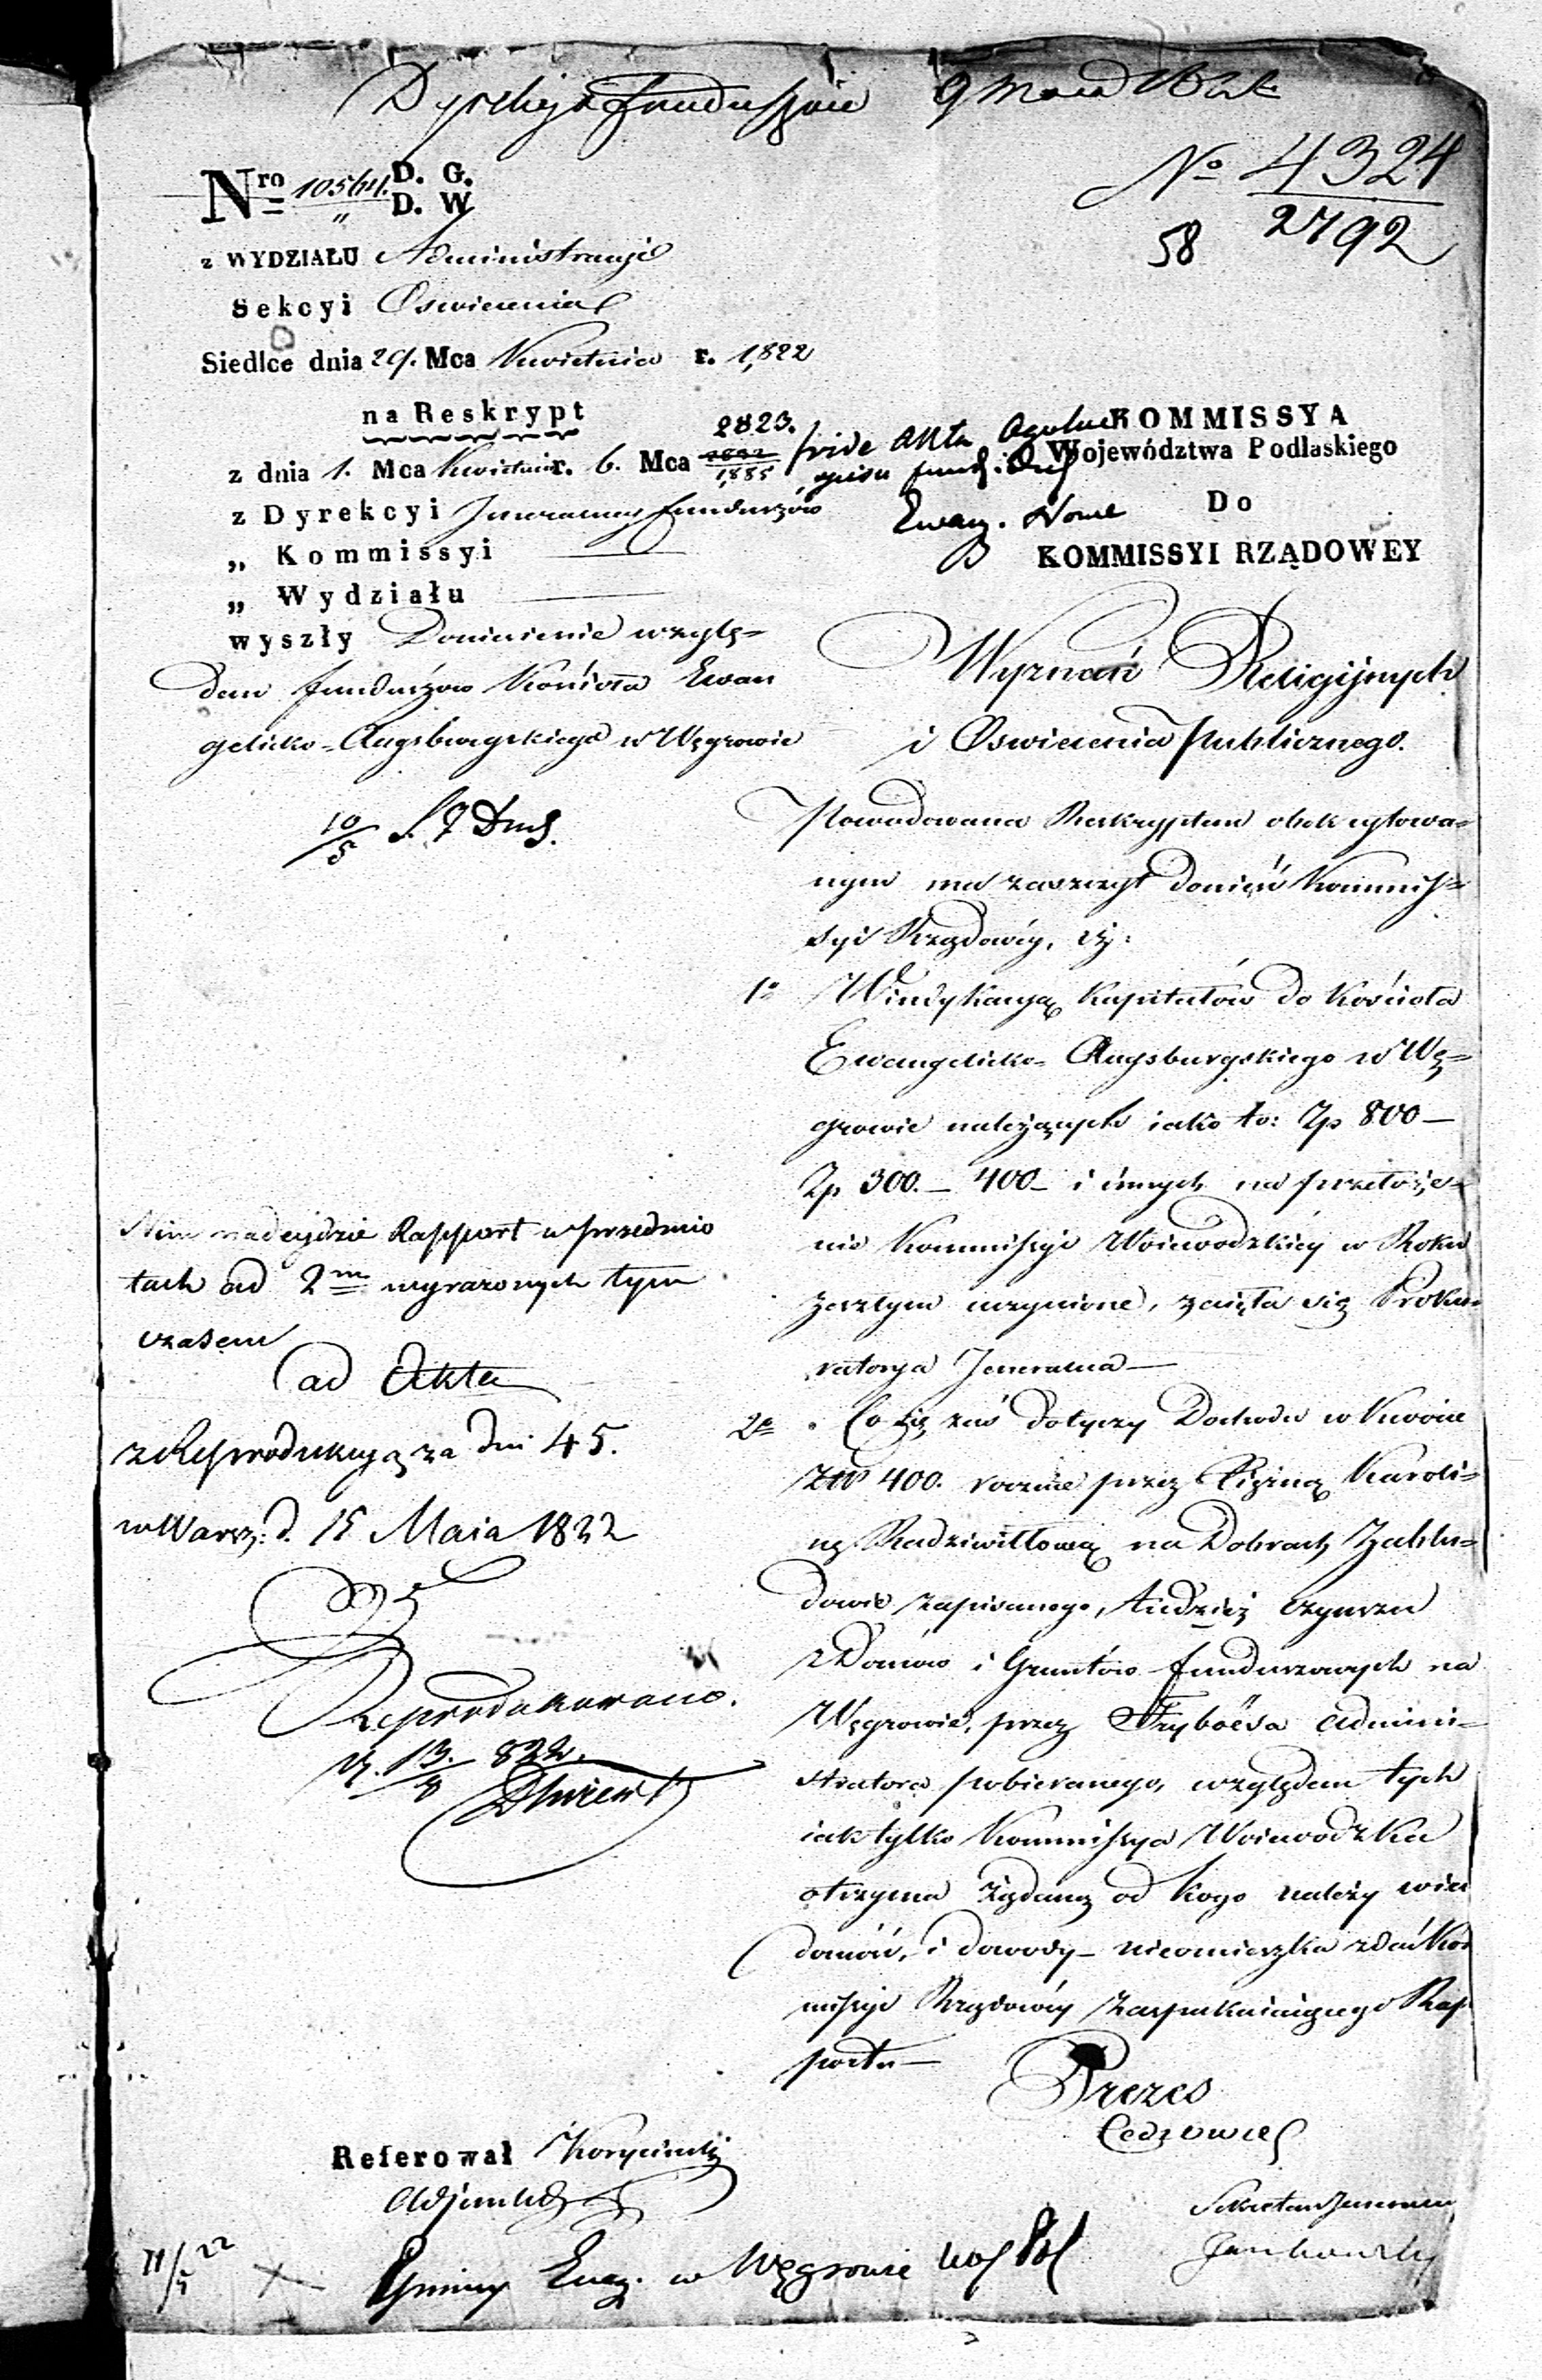 Dyrekcyi Funduszów 9 Maia
Nro 10564. D. G.
" D. W.
No 4324
2792
58
z WYDZIAŁU Administracyi
Sekcyi Oswiecenia
Siedlce dnia 29. Mca Kwietnia r. 1,822
na Reskrypt
z dnia 1. Mca Kwietnia r. b. Mca 2823.
1,885
z Dyrekcyi Jeneralney Funduszów
„ Kommissyi
„ Wydziału
wyszły Doniesienie wzglę=
dem funduszow Kościoła Ewan
gelicko=Augsburgskiego w Węgrowie
10/5
vide Akta
Ewang.
KOMMISSYA
Województwa Podlaskiego
Do
KOMMISSYI RZĄDOWEY
Wyznań Religijnych
i Oswiecenia Publicznego.
Powodowana Reskryptem obok cytowa=
nym ma zaszczyt donieść Kommis=
syi Rządowéy, iż:
1o Windykacyą Kapitałów do Kościoła
Ewangelicko=Augsburgskiego w Wę=
growie należących iako to: Zp 800 —
Zp 300. — 400 — i innych na przełoże=
nie Kommissyi Woiewodzkiéy w Roku
zeszłym uczynione, zaięła się Proku
ratorya Jeneralna —
2o Co się zaś dotyczy Dochodu w Kwocie
Złp 400. rocznie przez Xiężnę Karoli=
nę Radziwiłłową na Dobrach Zabłu=
dowie zapisanego, tudzież czynszu
z Domów i Gruntów funduszowych na
Węgrowie, przez Fryboësa Admini=
stratora pobieranego, względem tych
iak tylko Kommissya Woiewodzka
otrzyma żądaną od kogo należy wia
domość, i dowody — nieomieszka zdać Kom
missyi Rządowéy zaspakaiaiącego Rap
portu —
Nim nadeydzie Rapport w przedmio
tach ad 2m wyrażonych tym
czasem
ad Akta
z Reprodukcyą za dni 45.
w Warsz: d. 15 Maia 1822
Reprodukowano.
d. 13/8 822.
Prezes
Referował
Adjunkt
Sekretarz Jeneralny
Jankowski
11/5 22
Gminy Ewg. w Węgrowie Woj Pol